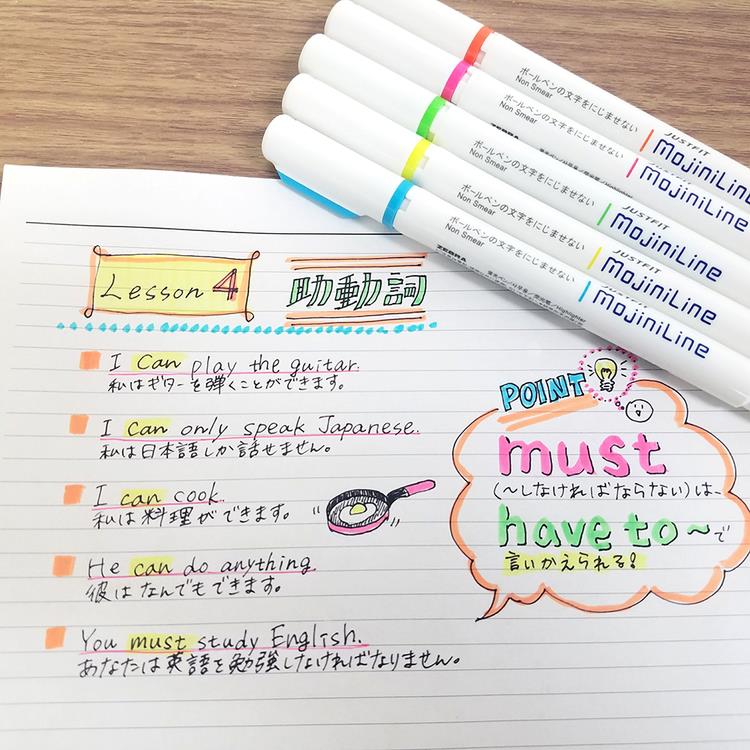 ボールペンの文字をにじませない
Non Smear
JUSTFIT
MojiniLine
ボールペンの文字をにじませない
Non Smear
JUSTFIT
MojiniLine
ボールペンの文字をにじませない
Non Smear
JUSTFIT
MojiniLine
ボールペンの文字をにじませない
Non Smear
JUSTFIT
MojiniLine
ボールペンの文字をにじませない
Non Smear
ZEBRA
JUSTFIT
MojiniLine
Lesson 4 助動詞
I can play the guitar.
私はギターを弾くことができます。
I can only speak Japanese.
私は日本語しか話せません。
I can cook.
私は料理ができます。
He can do anything.
彼はなんでもできます。
You must study English.
あなたは英語を勉強しなければなりません。
POINT
must
(〜しなければならない)は、
have to〜で
言いかえられる!